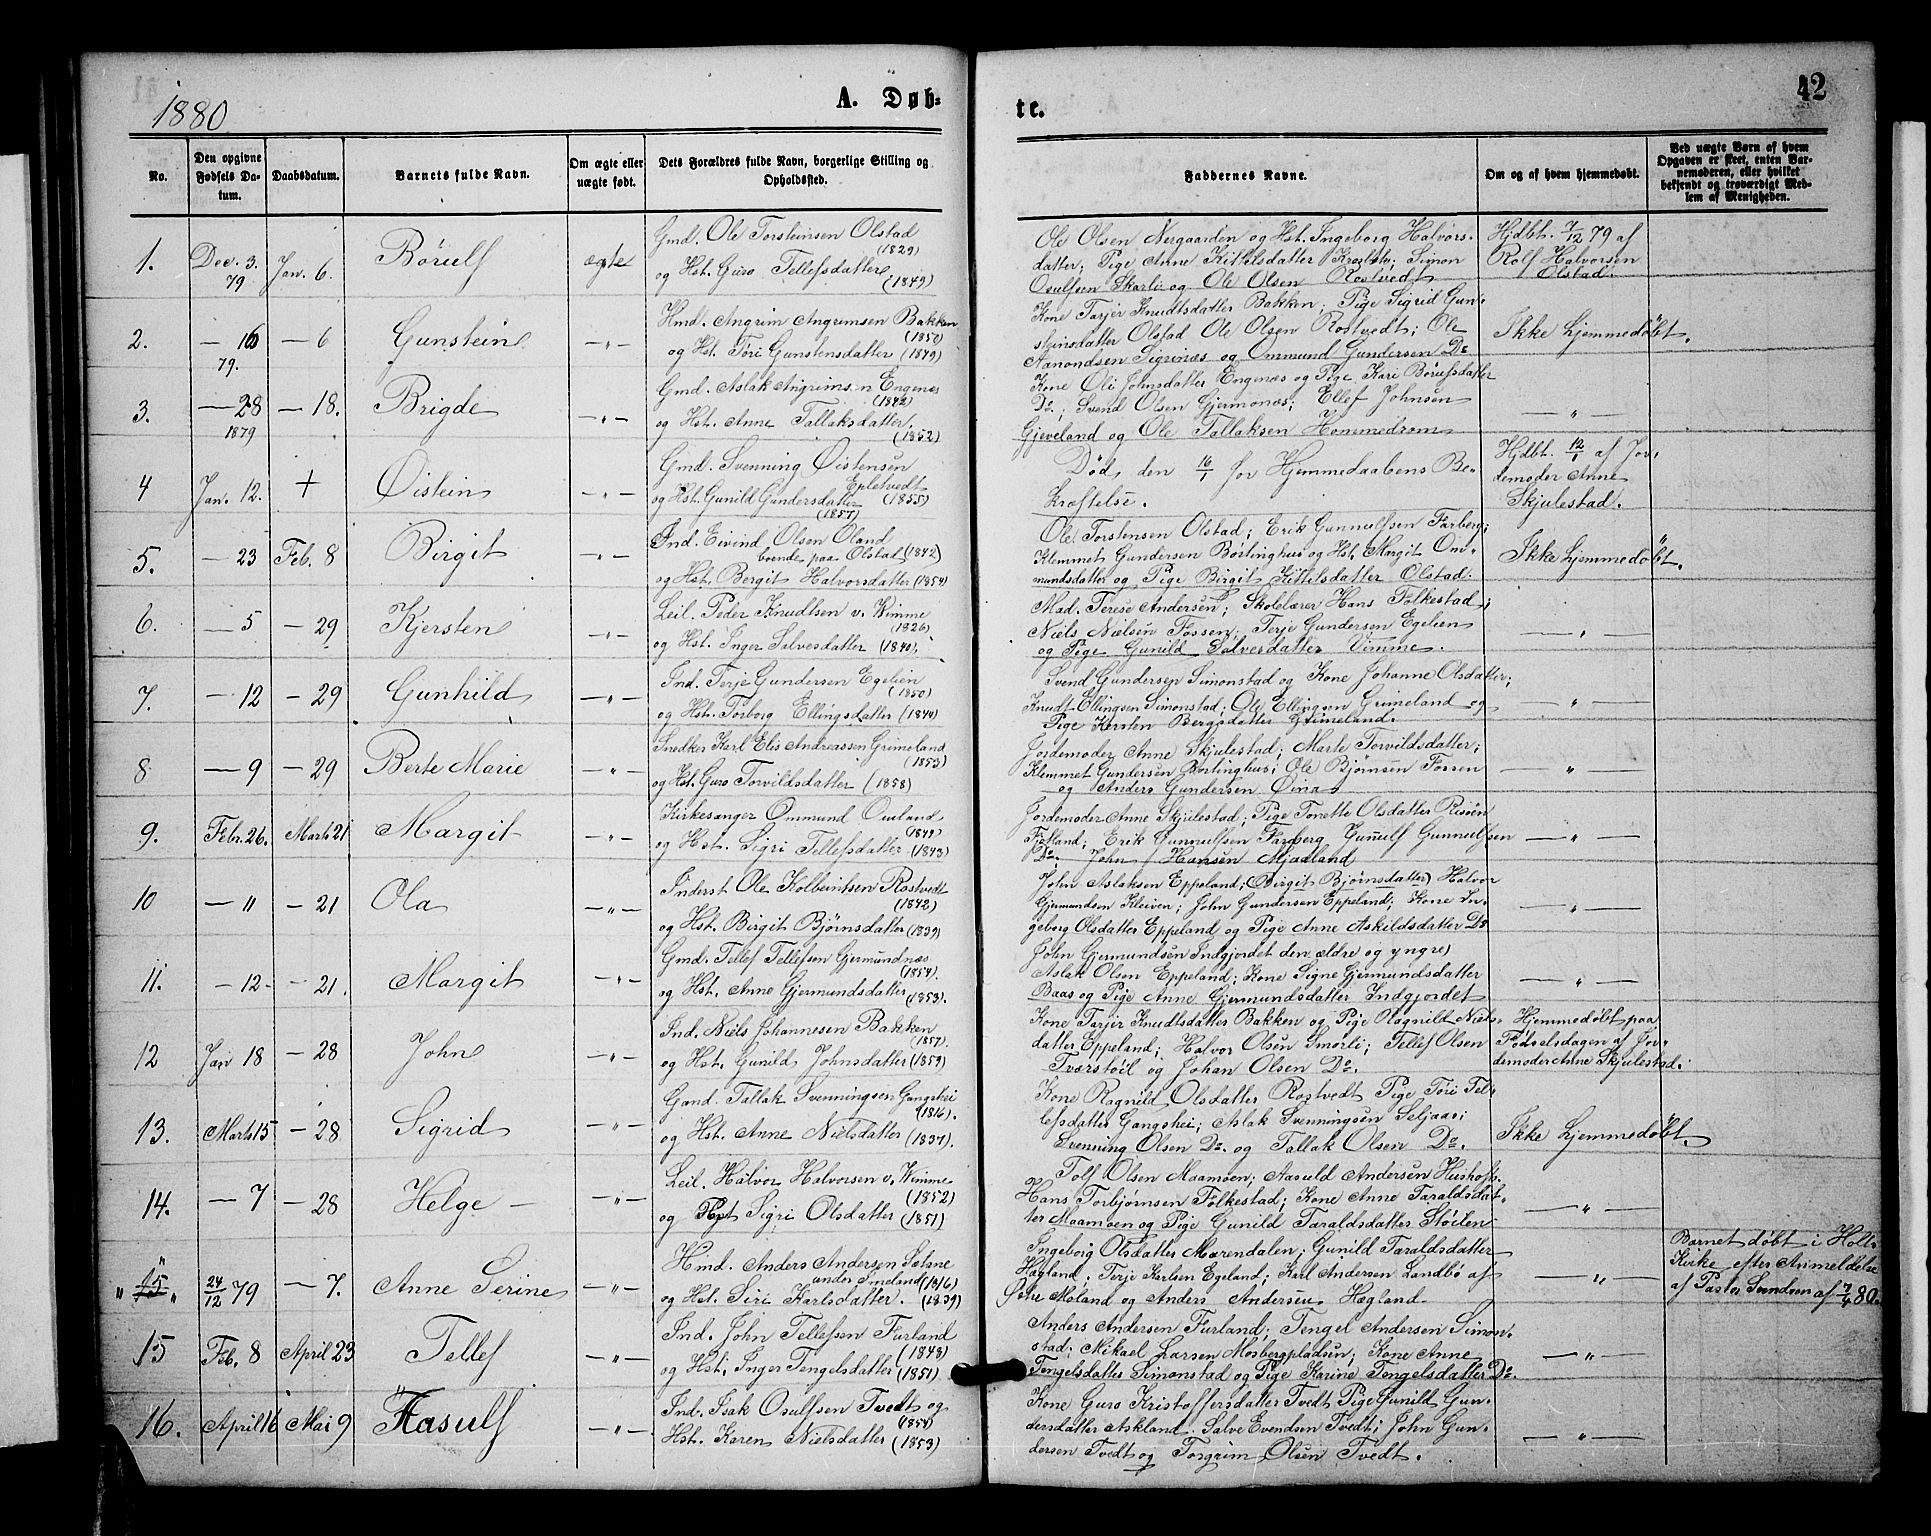 1880
A. Døb=
te.
42
No.
Den opgivne Fødsels Da-tum.
Daabsdatum.
Barnets fulde Navn.
Om ægte eller uægte født.
Dets Forældres fulde Navn, borgerlige Stilling og Opholdssted.
Faddernes Navne.
Om og af hvem hjemmedøbt.
Ved uægte Børn af hvem Opgaven er skeet, enten Bar-nemoderen, eller hvilket bekjendt og troværdigt Med-lem af Menigheden.
1. Dec. 3. 79 Jan. 6. Børulf ægte
Gmd. Ole Torsteinsen Olstad (1829)
og Hst. Guro Tellefsdatter (1849)
Ole Olsen Nergaarden og Hst. Ingeborg Halvors-
datter; Pige Anne Kittelsdatter Simon
Osulfsen Skarli og Ole Olsen Rostvedt
Hjdbt. 7/12 79 af
Rolf Halvorsen
Olstad.
2. — 16 79. — 6 Gunstein — " —
Hmd. Angrim Angrimsen Bakken (1850)
og Hst. Töri Gunstensdatter (1849)
Kone Tarjer Knudtsdatter Bakken; Pige Sigrid Gun-
steinsdatter Olstad Ole Olsen Rostvedt; Ole
Aanondsen Sigrinæs og Ommund Gundersen Do
Ikke hjemmedøbt.
3. — 28 1879 — 18. Brigde — " —
Gmd. Aslak Angrimsen Engenæs (1842)
og Hst. Anne Tallaksdatter. (1852)
Kone Oli Johnsdatter Engenæs og Pige Kari Børufsdatter
Do.; Svend Olsen Gjermonæs; Ellef Johnsen
Gjeveland og Ole Tallaksen Hommedrom
— " —
4 Jan. 12. + Øistein — " —
Gmd. Svenning Øistensen
Epletvedt (1855)
og Hst. Gunild Gundersdatter (1857)
Død den 16/1 før Hjemmedaabens Be-
kræftelse.
Hjdbt. 12/1 af Jor-
demoder Anne
Skjulestad.
5. — 23 Feb. 8 Birgit — " —
Ind. Eivind Olsen Oland
boende paa Olstad (1842)
og Hst. Bergit Halvorsdatter (1854)
Ole Torstensen Olstad; Erik Gunnulfsen Farberg;
Klemmet Gundersen Børlinghus og Hst. Margit Om-
mundsdatter og Pige Birgit Kittelsdatter Olstad.
Ikke hjemmedøbt.
6. — 5 — 29 Kjersten — " —
Leil. Peder Knudtsen v. Wimme (1826)
og Hst. Inger Salvesdatter (1840).
Mad. Terese Andersen; Skolelærer Hans Folkestad;
Niels Nielsen Fossen; Terje Gundersen Egelien
og Pige Gunild Salvesdatter Vimme.
— " —
7. — 12 — 29 Gunhild — " —
Ind. Terje Gundersen Egelien (1850)
og Hst. Torborg Ellingsdatter (1840)
Svend Gundersen Simonstad og Kone Johanne Olsdatter;
Knudt Ellingsen Simonstad; Ole Ellingsen Grimeland og
Pige Kersten Bergsdatter Grimeland.
— " —
8 — 9 — 29 Berte Marie — " —
Snedker Karl Elis Andreassen Grimeland (1853)
og Hst. Guro Torvildsdatter (1858)
Jordemoder Anne Skjulestad; Marte Torvildsdatter;
Klemmet Gundersen Børlinghus; Ole Bjørnsen Fossen
og Anders Gundersen Øinas
— " —
9. Febr. 26. Marts 21 Margit — " —
Kirkesanger Ommund Ouland (1849)
og Hst. Sigri Tellefsdatter (1843)
Jordemoder Anne Skjulestad; Pige Tonette Olsdatter Risøen
Fjotland; Erik Gunnulfsen Farberg Gunnulf Gunnulfsen
Do. John Hansen Mjaaland
— " —
10 — 11 — 21 Ola — " —
Inderst Ole Kolbeintsen Rostvedt (1842)
og Hst. Birgit Bjørnsdatter (1839)
John Aslaksen Eppeland; (Birgit Bjørnsdatter) Halvor
Gjermundsen Kleiven; John Gundersen Eppeland; Kone In-
geborg Olsdatter Eppeland og Pige Anne Askildsdatter Do
— " —
11. — 12 — 21. Margit — " —
Gmd. Tellef Tellefsen Gjermundnæs (1854).
og Hst. Anne Gjermundsdatter (1853).
John Gjermundsen Indgjordet den ældre og yngre)
Aslak Olsen Eppeland; Kone Signe Gjermundsdatter
Baas og Pige Anne Gjermundsdatter Indgjordet
— " —
12 Jan 18 — 28 John — " —
Ind. Niels Johannesen Bakken (1857).
og Hst. Gunild Johnsdatter (1859)
Kone Tarjer Knudtsdatter Bakken og Pige Olagnild Niels-
datter Eppeland; Halvor Olsen Smorli; Tellef Olsen
Tvorstöil og Johan Olsen Do.
Hjemmedøbt paa
Fødselsdagen af Jor-
demoder Anne Skjulestad.
13. Marts 15 — 28 Sigrid — " —
Gaml. Tallak Svenningsen Gangshei (1816).
og Hst. Anne Nielsdatter (1837).
Kone Ragnild Olsdatter Rostvedt Pige Tóri Tel-
lefsdatter Gangshei; Aslak Svenningsen Seljaas;
Svenning Olsen Do. og Tallak Olsen Do.
Ikke hjemmedøbt.
14. — 7 — 28 Helge — — " —
Leil. Halvor Halvorsen v. Wimme (1852)
og Hst Sigri Olsdatter (1851)
Tolf Olsen Maamoen; Aasuld Andersen Hushoft.
Hans Torbjørnsen Folkestad; Kone Anne Taraldsdat-
ter Maamoen og Pige Gunild Taraldsdatter Stöilen
— " —
" 15 " 24/12 79 — 7. Anne Serine — " —
Hmd. Anders Andersen Sætane
under Smeland (1816)
og Hst. Siri Karlsdatter. (1839)
Ingeborg Olsdatter Mærendalen; Gunild Taraldsdatter
Hægland; Terje Karlsen Egeland; Karl Andersen Landbø af
Øvre Moland og Anders Andersen Hægland
— " —
Barnet døbt i Holts
Kirke efter Anmeldelse
af Pastor Sundsen af 7/4 80.
15 Feb. 8 April 23 Tellef — " —
Ind. John Tellefsen Furland (1848)
og Hst. Inger Tengelsdatter (1851)
Anders Andersen Furland; Tengel Andersen Simon-
stad; Mikael Larsen Mosbergpladsen; Kone Anne
Tengelsdatter Simonstad og Pige Karine Tengelsdatter Do.
— " —
16. April 16 Mai 9 Aasulf — " —
Ind. Isak Osulfsen Tvedt og (1854)
Hst. Karen Nielsdatter (1853)
Kone Guro Kristoffersdatter Tvedt Pige Gunild Gun-
dersdatter Askland. Salve Evendsen Tvedt; John Gun-
dersen Tvedt og Torgrim Olsen Tvedt.
— " —